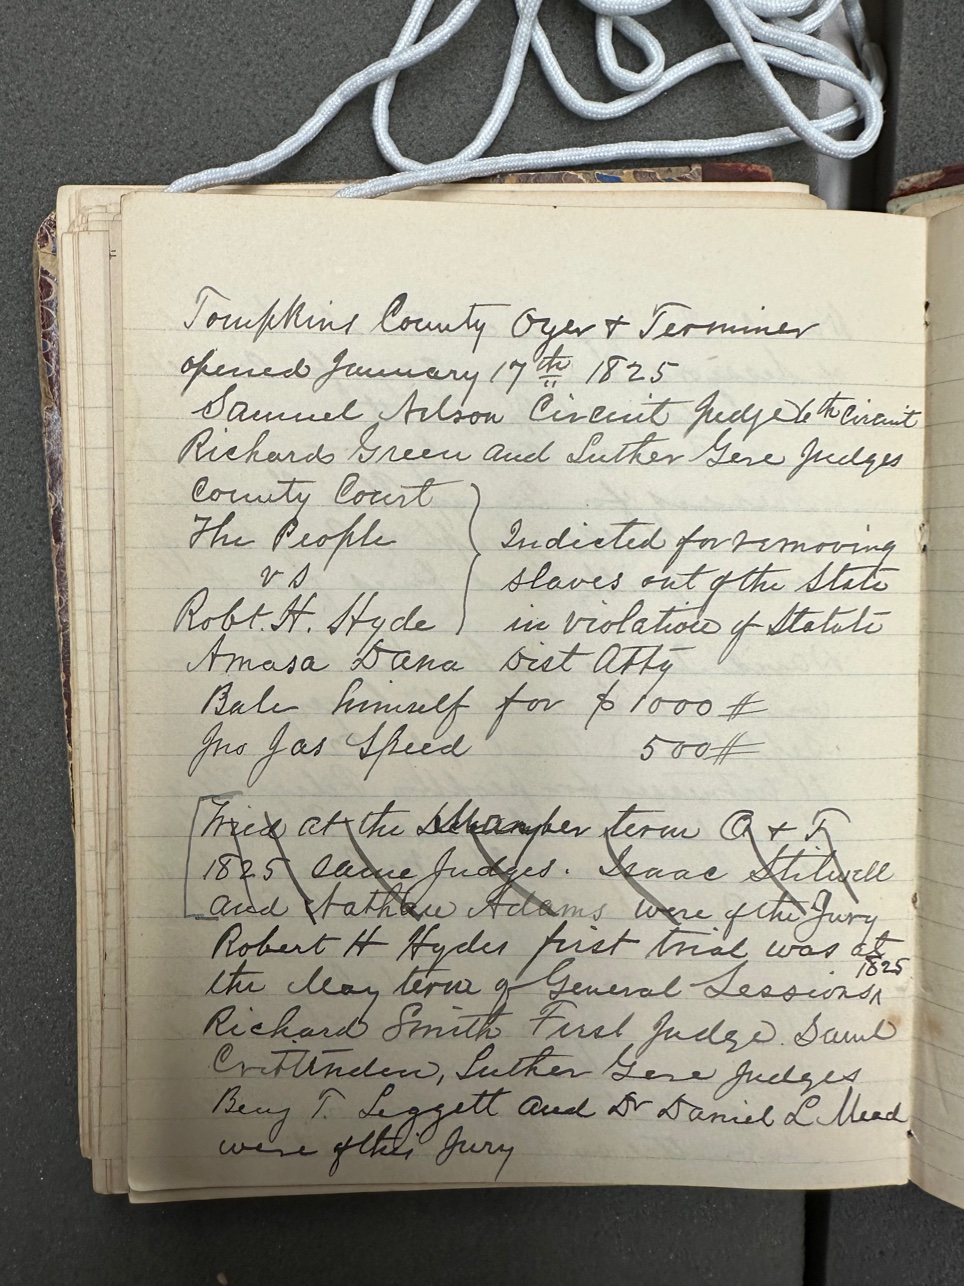 Tompkins County Oyer & Terminer
opened January 17th 1825
Samuel Nelson Circuit Judge 6th Circuit
Richard Green and Luther Gere Judges
County Court
The People
vs
Robt. H. Hyde
Indicted for removing
slaves out of the State
in violation of Statute
Amasa Dana Dist Atty
Bale himself for $1000
Jno Jas Speed 500
Tried at the term O & T
1825 same Judges. Isaac Stilwell
and Nathan Adams were of the Jury
Robert H Hydes first trial was at
the May term of General Sessions 1825
Richard Smith First Judge. Danl
Crittenden, Luther Gere Judges
Benj T. Leggett and Dr Daniel L Mead
were of this Jury